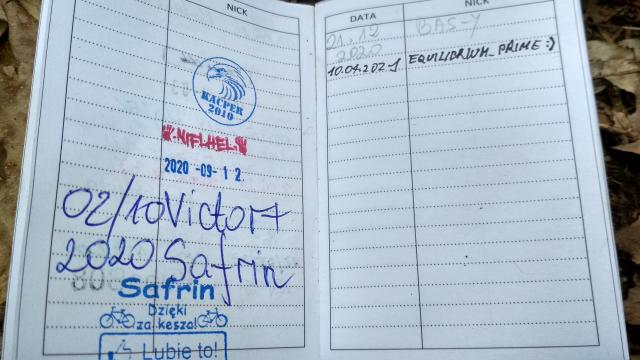 NICK
KACPER
2010
NIFLHEL
2020 -09- 1 2
02/10 Victor7
2020 Safrin
Safrin
Dzięki
za kesza!
Lubię to!
DATA NICK
01.12 BAS-Y
2020
10.04.2021 EQUILIBRIUM_PRIME :)